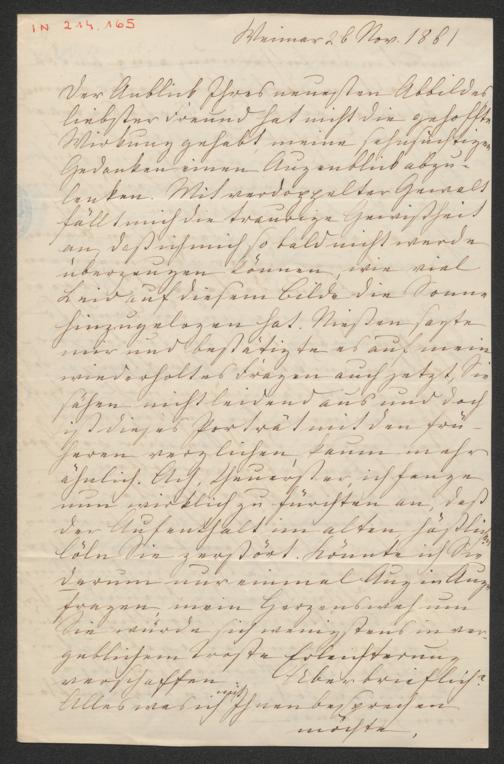 IN 214.165
Weimar 26 Nov. 1881
Der Anblick Ihres neuesten Abbildes
liebster Freund hat nicht die gehoffte
Wirkung gehabt meine sehnsüchtigen
Gedanken einen Augenblick abzu-
lenken. Mit verdoppelter Gewalt
fällt mich die traurige Gewißheit
an, daß ich mich so bald nicht werde
überzeugen können, wie viel
Leid auf diesem Bilde die Sonne
hinzugelogen hat. Nießen sagte
mir und bestätigte es auf mein
wiederholtes Fragen auch jetzt, Sie
sähen nicht leidend aus und doch
ist dieses Porträt mit den frü-
heren verglichen, kaum mehr
ähnlich. Ach, theuerster, ich fange
nun wirklich zu fürchten an, daß
der Aufenthalt im alten häßlichen
Cöln Sie zerstört. Könnte ich Sie
darum nur einmal Aug in Auge
fragen, mein Herzensweh um
Sie würde sich wenigstens in ver-
geblichem Troste Erleichterung
verschaffen. Aber brieflich?
Alles was ich mit Ihnen besprechen
möchte,